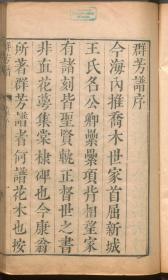 群芳譜序
今海內推喬木世家首屈新城
王氏名公卿纍纍項背相望家
有諸刻皆聖賢軌正督世之書
非花蕚集棠棣碑也今康翁
所著群芳譜者何譜花木也按